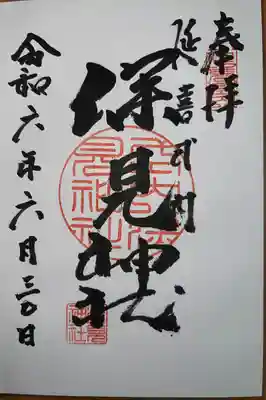 奉拝
延喜式内
深見神社
令和六年六月三十日